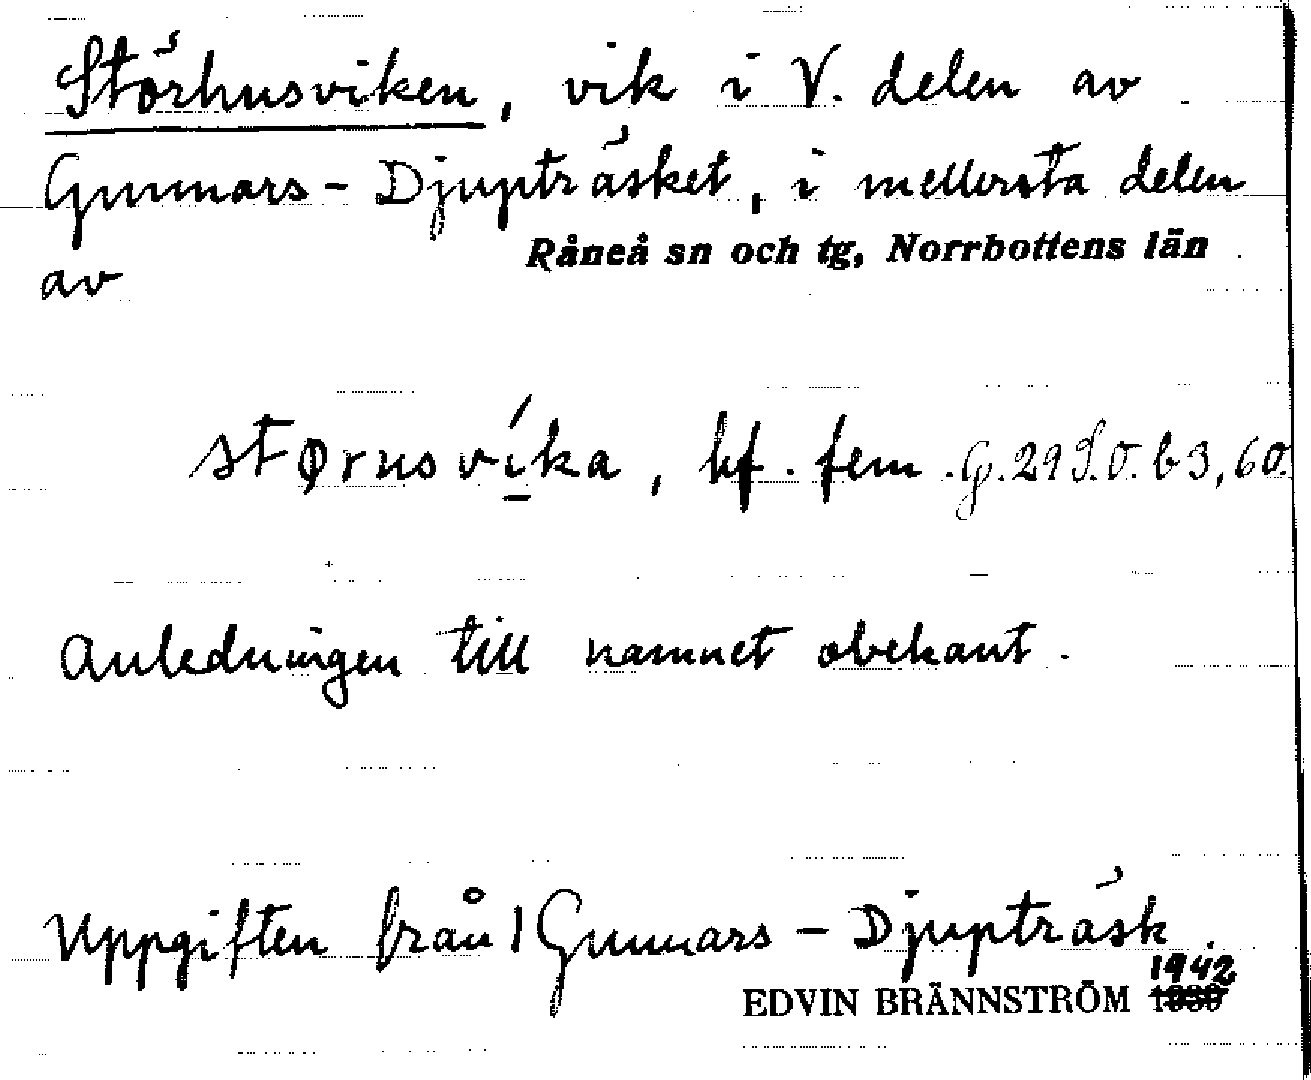 Störhusviken, vik i V. delen av
Gunnars-Djupträsket, i mellersta delen
av Råneå sn och tg, Norrbottens län
størnsvíka, bf. fem. G. 29 S.O. b 3, 60.
Anledningen till namnet obekant.
Uppgiften från Gunnars-Djupträsk.
1942
EDVIN BRÄNNSTRÖM